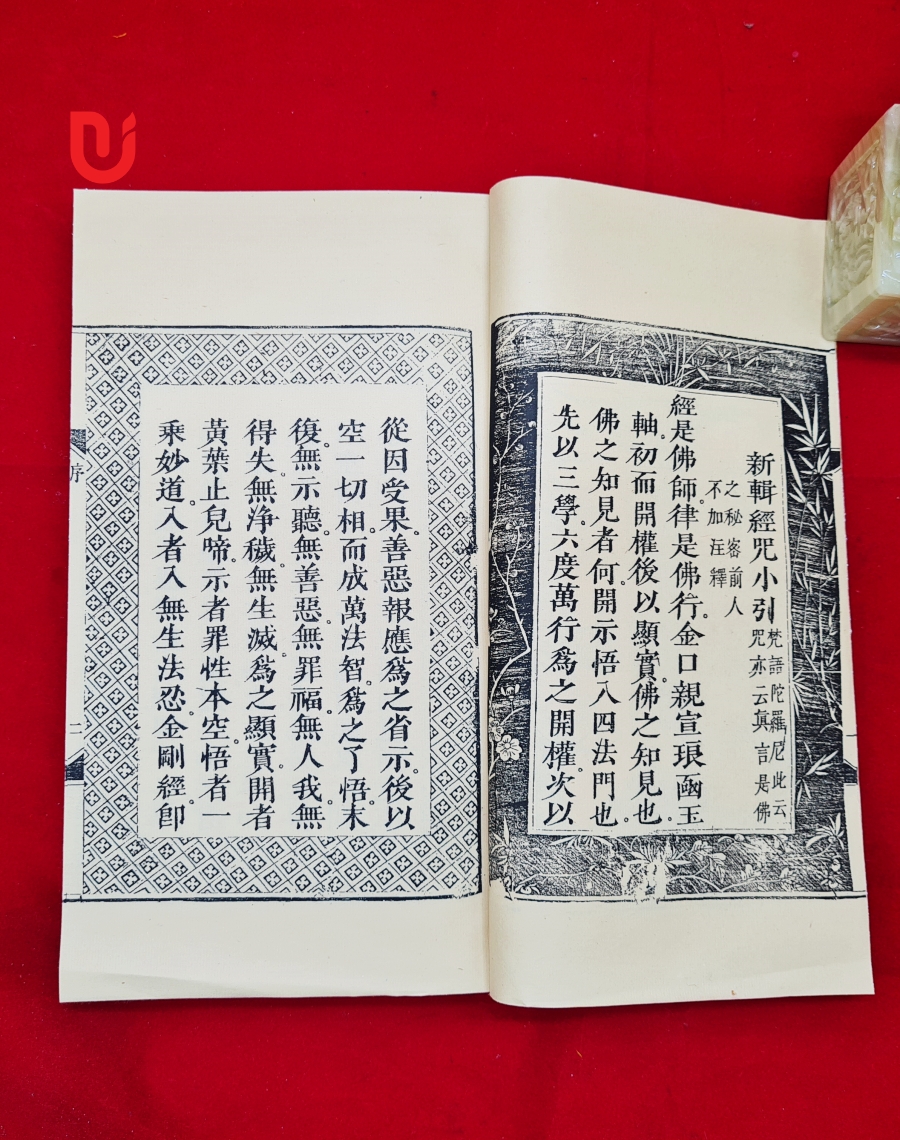 新輯經咒小引 梵語陀羅尼此云咒亦云真言是佛
之秘密前人不加注釋
經是佛師。律是佛行。金口親宣琅函玉
軸。初而開權後以顯實。佛之知見也。
佛之知見者何。開示悟入四法門也。
先以三學。六度萬行爲之開權。次以
從因受果。善惡報應爲之省示。後以
空一切相。而成萬法智。爲之了悟。末
復。無示聽。無善惡。無罪福。無人我。無
得失。無淨穢。無生滅。爲之顯實。開者
黃葉止兒啼。示者罪性本空。悟者一
乘妙道。入者入無生法忍。金剛經卽
序
一
二